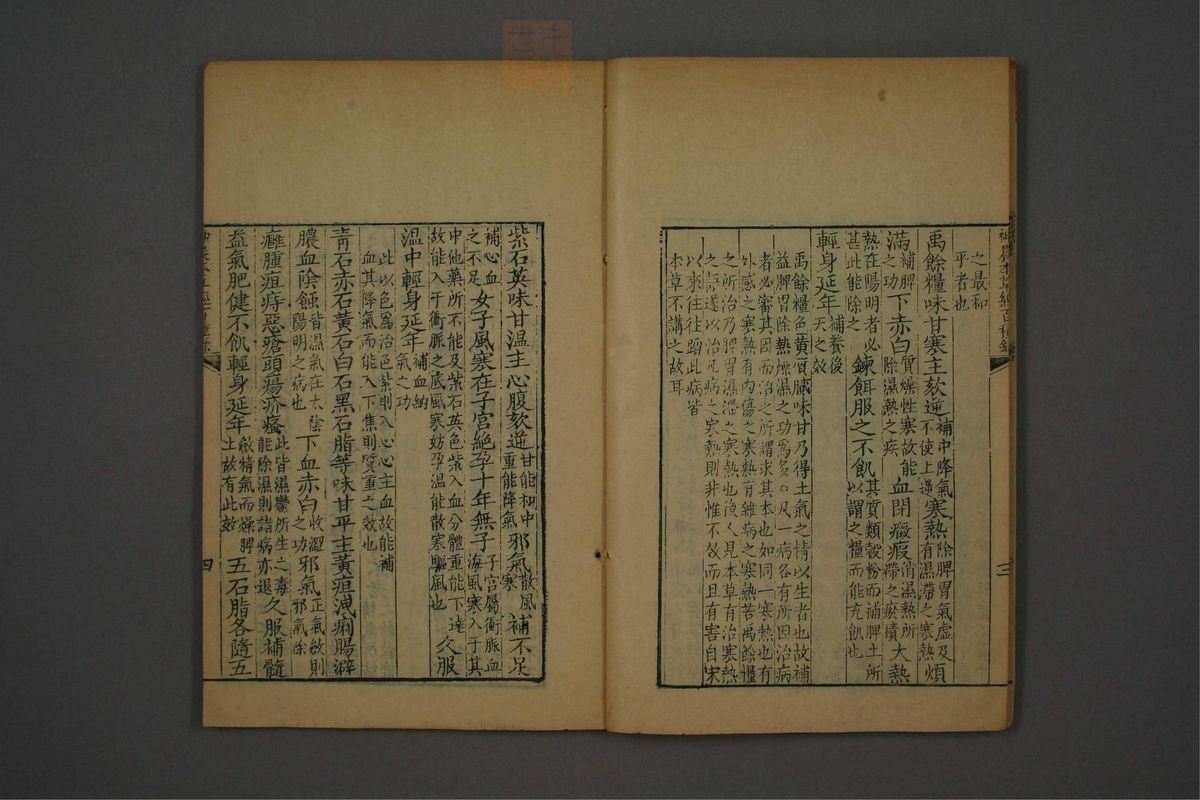 神農本草經百種錄
之最和
平者也
禹餘糧味甘寒主欬逆補中降氣不使上逆寒熱除脾胃氣虛及有濕滯之寒熱煩
滿補脾之功下赤白質燥性寒故能除濕熱之疾血閉癥瘕消濕熱所滯之瘀積大熱
熱在陽明者必甚此能除之鍊餌服之不飢其質類穀粉而補脾土所以謂之糧而能充飢也
輕身延年補養後天之效
禹餘糧色黃質膩味甘乃得土氣之精以生者也故補
益脾胃除熱燥濕之功爲多○凡一病各有所因治病
者必審其因而治之所謂求其本也如同一寒熱也有
外感之寒熱有內傷之寒熱有雜病之寒熱若禹餘糧
之所治乃脾胃濕滯之寒熱也後人見本草有治寒熱
之語遂以治凡病之寒熱則非惟不效而且有害自宋
以來往往蹈此病皆
本草不講之故耳
三
紫石英味甘溫主心腹欬逆甘能和中重能降氣邪氣散風寒補不足
補心血之不足女子風寒在子宮絕孕十年無子子宮屬衝脈血海風寒入于其
中他藥所不能及紫石英色紫入血分體重能下達故能入于衝脈之底風寒妨孕溫能散寒驅風也久服
溫中輕身延年補血納氣之功
此以色爲治色紫則入心心主血故能補
血其降氣而能入下焦則質重之效也
青石赤石黃石白石黑石脂等味甘平主黃疸洩痢腸澼
膿血陰蝕皆濕氣在太陰陽明之病也下血赤白收澀之功邪氣正氣斂則邪氣除
癰腫疽痔惡瘡頭瘍疥瘙此皆濕鬱所生之毒能除濕則諸病亦退久服補髓
益氣肥健不飢輕身延年斂精氣而燥脾土故有此效五石脂各隨五
神農本草經百種錄
四